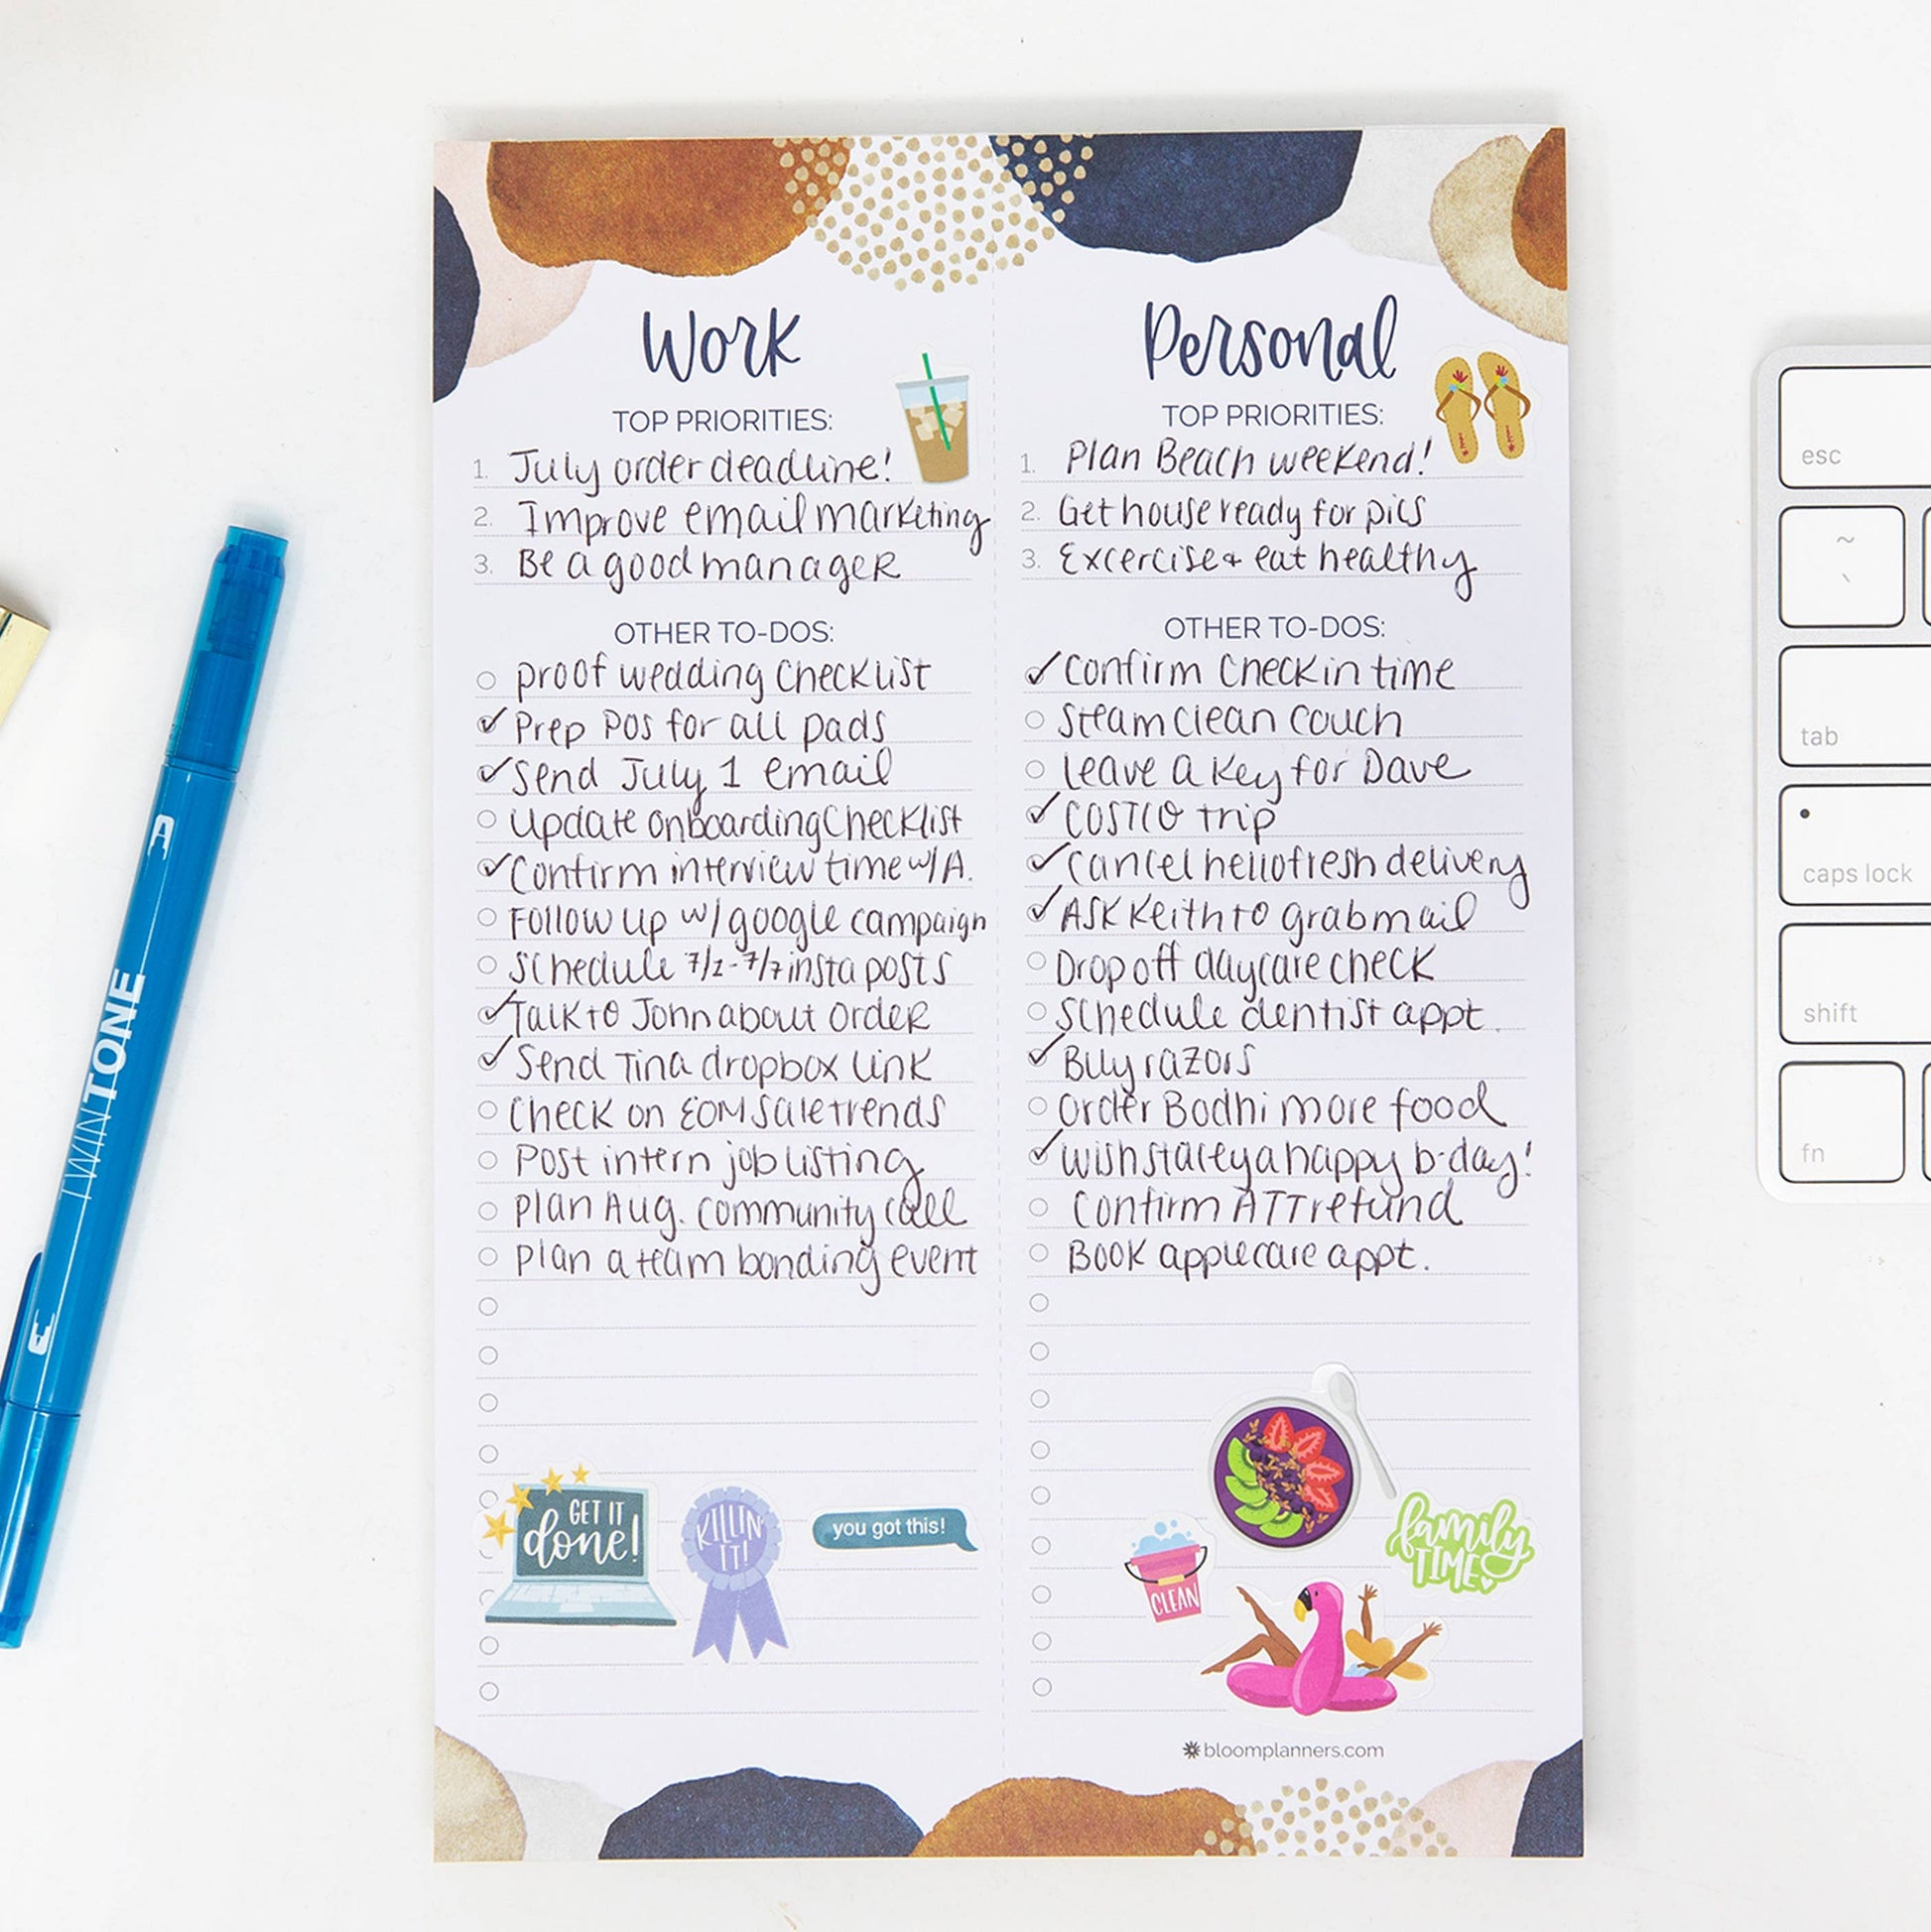 Work
TOP PRIORITIES:
1. July order deadline!
2. Improve email marketing
3. Be a good manager
OTHER TO-DOS:
proof wedding checklist
Prep POs for all pads
Send July 1 email
update onboarding checklist
Confirm interview time w/A.
Follow up w/google campaign
schedule 7/1-7/7 insta posts
Talk to John about order
Send Tina dropbox link
Check on EOM sale trends
Post intern job listing
plan Aug. community call
plan a team bonding event
GET IT
done!
KILLIN'
IT!
you got this!
Personal
TOP PRIORITIES:
1. Plan Beach weekend!
2. Get house ready for pics
3. Excercise & eat healthy
OTHER TO-DOS:
Confirm Check in time
Steam clean couch
leave a key for Dave
COSTCO trip
Cancel hellofresh delivery
ASK Keith to grab mail
Drop off daycare check
Schedule dentist appt.
Buy razors
Order Bodhi more food
Wish stacey a happy b-day!
Confirm ATT refund
Book applecare appt.
family
TIME
CLEAN
bloomplanners.com
TWINTONE
esc
~
`
tab
caps lock
shift
fn